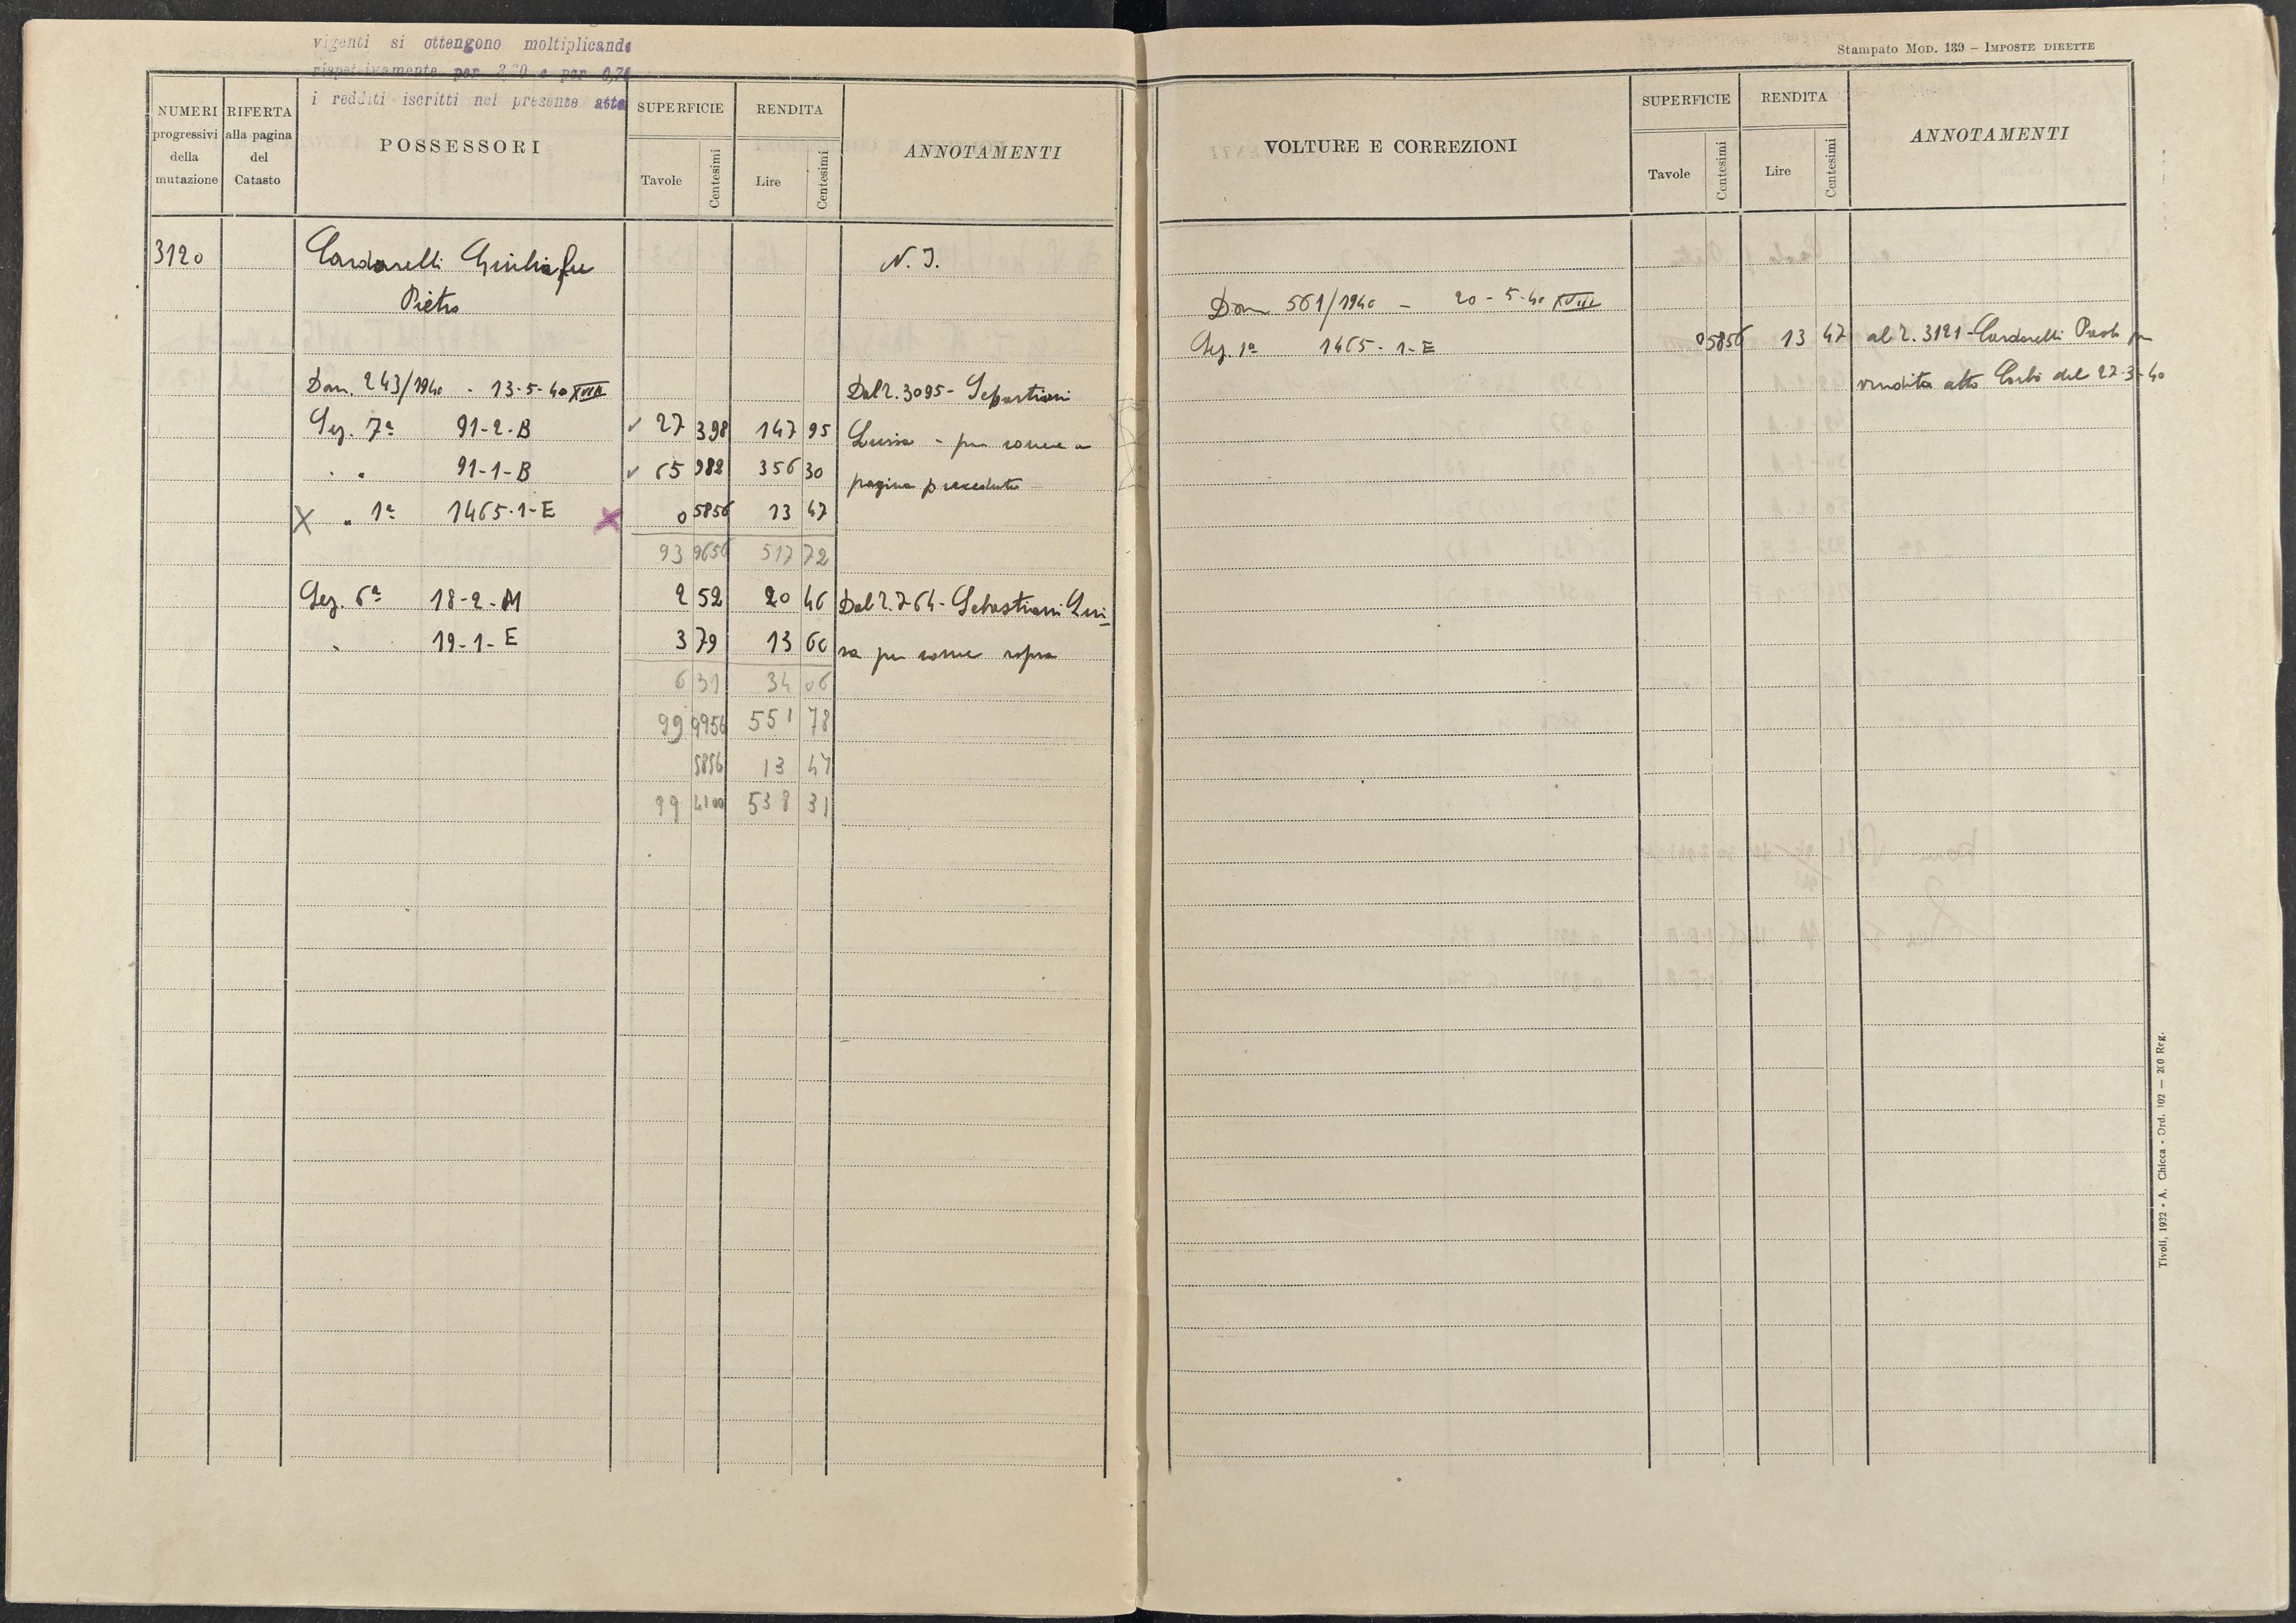 vigenti si ottengono moltiplicando
rispettivamente per e per 0,70
i redditi iscritti nel presente atto
NUMERI progressivi della mutazione
RIFERTA alla pagina del Catasto
POSSESSORI
SUPERFICIE
Tavole Centesimi
RENDITA
Lire Centesimi
ANNOTAMENTI
3120 Cardarelli Giulia fu N. I.
Pietro
Dom. 243/1940 - 13-5-40 XVIII Dal R. 3095 - Sebastiani
Sez. 7ª 91-2-B ✓ 27 398 147 95 Luisa - per come a
" " 91-1-B ✓ 65 982 356 30 pagina precedente
X " 1ª 1465-1-E X 0 5856 13 47
93 9656 517 72
Sez. 6ª 18-2-M 2 52 20 46 Dal R. 764 - Sebastiani Lui-
" 19-1-E 3 79 13 60 sa per come sopra
6 31 34 06
99 9956 551 78
5856 13 47
99 4100 538 31
Stampato MOD. 139 – IMPOSTE DIRETTE
VOLTURE E CORREZIONI
SUPERFICIE
Tavole Centesimi
RENDITA
Lire Centesimi
ANNOTAMENTI
Dom 561/1940 - 20-5-40 XVIII
Sez. 1ª 1465-1-E 0 5856 13 47 al R. 3121 - Cardarelli Paolo per
vendita atto del 27-3-40
Tivoli, 1932 - A. Chicca - Ord. 102 — 200 Reg.